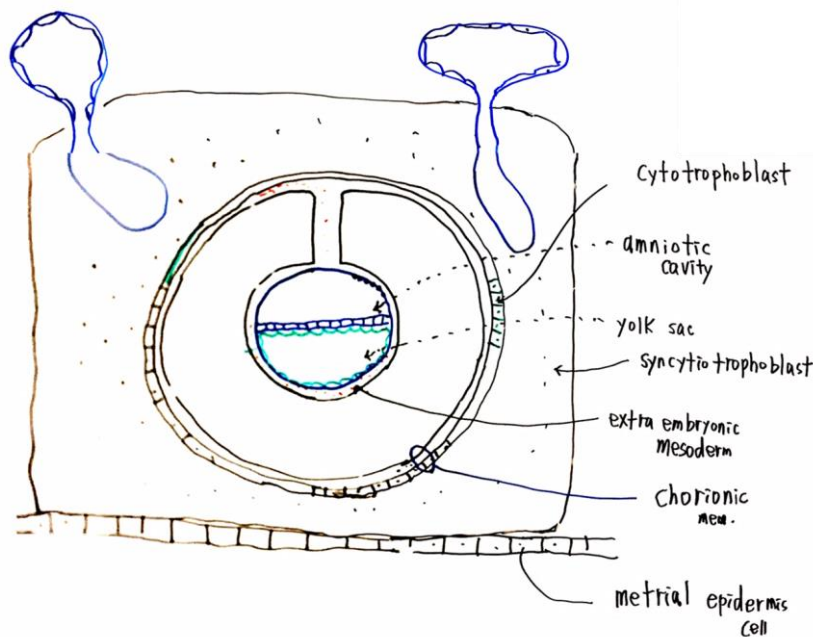 Cytotrophoblast
amniotic
cavity
yolk sac
syncytiotrophoblast
extra embryonic
mesoderm
Chorionic
mem.
metrial epidermis
cell